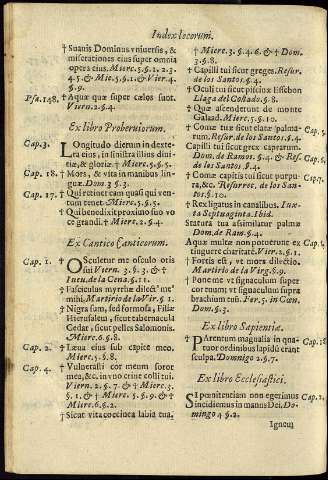 Index locorum.
† Suauis Dominus vniuersis, &
miserationes eius super omnia
opera eius. Mierc. §. 1. 2. 3.
4. 5. & Mie. 5. §. 1. & Vier. 4.
§. 9.
Psa. 148. † Aquæ quæ super cælos sunt.
Viern. 2. §. 4.
Ex libro Proberuiorum.
Cap. 3. LOngitudo dierum in dexte-
ra eius, in sinistra illius diui-
tiæ, & gloriæ † Mierc. 5. §. 5.
Cap. 18. † Mors, & vita in manibus lin-
guæ. Dom 3 §. 3.
Cap. 17. † Qui retinet eam quasi qui ven-
tum tenet. Mierc. 5. §. 3.
† Qui benedixit proximo suo vo
ce grandi. † Mierc. 2. §. 4.
Ex Cantico Canticorum.
Cap. 1. OSculetur me osculo oris
sui Viern. 3. §. 3. & †
Iueu. de la Cena. §. 11.
† Fasciculus myrrhæ dilect9 me9
mihi. Martirio de la Vir. §. 1.
† Nigra sum, sed formosa, Filiæ
Hierusalem, sicut tabernacula
Cedar, sicut pelles Salomonis.
Mierc. 6. §. 8.
Cap. 2. † Læua eius sub capite meo.
Mierc. 5. §. 8.
Cap. 4. † Vulnerasti cor meum soror
mea, &c. in vno crine colli tui.
Viern. 2. §. 7. & † Mierc. 3.
§. 1. & † Mierc. 5. §. 9. & †
Mierc. 6. §. 2.
† Sicut vitta coccinea labia tua.
† Mierc. 3. §. 4. 6. & † Dom.
3. §. 8.
† Capilli tui sicut greges. Resur.
de los Santos. §. 4.
† Oculi tui sicut piscinæ Essebon
Llaga del Coñado. §. 8.
† Quæ ascenderunt de monte
Galaad. Mierc. 5. §. 10.
† Comæ tuæ sicut elatæ palma-
rum. Resur. de los Santos. §. 4.
† Comæ tuæ sicut grex caprarum
Dom. de Ramos. §. 4. & Resur.
de los Santos. §. 4.
† Comæ capitis tui sicut purpu-
ra, &c. Resurrec. de los San-
tos. §. 10.
† Rex ligatus in canalibus. Iuxta
Septuaginta. Ibid.
Statura tua assimilatur palmæ
Dom. de Ram. §. 4.
Aquæ multæ non potuerunt ex
tinguere charitatẽ. Viern. 1. §. 5.
† Fortis est, vt mors dilectio.
Martirio de la Virg. §. 9.
† Pone me vt signaculum super
cor tuum; vt signaculum supra
brachium tuũ. Fer. 5. in Cœn.
Dom. §. 3.
Ex libro Sapientiæ.
PArentum magnalia in qua-
tuor ordinibus lapidũ erant
sculpa. Domingo 2. §. 7.
Ex libro Ecclesiastici.
SI pœnitentiam non egerimus
incidemus in manus Dei, Do-
mingo 4 §. 2.
Igneũ